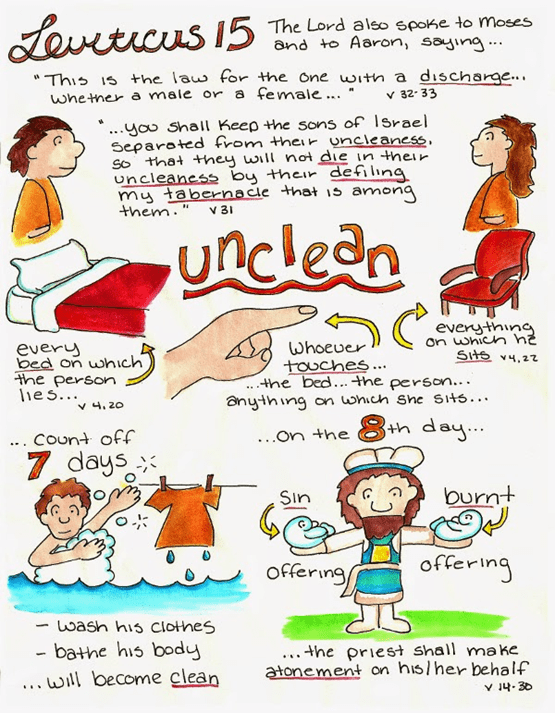 Leviticus 15
The Lord also spoke to Moses
and to Aaron, saying...
"This is the law for the one with a discharge...
whether a male or a female..." v 32-33
"...you shall keep the sons of Israel
separated from their uncleaness,
so that they will not die in their
uncleaness by their defiling
my tabernacle that is among
them." v 31
unclean
every
bed on which
the person
lies...
v 4,20
Whoever
touches...
...the bed...the person...
anything on which she sits...
everything
on which he
sits v 4,22
... count off
7 days
- wash his clothes
- bathe his body
... will become clean
...on the 8th day...
sin
offering
burnt
offering
...the priest shall make
atonement on his/her behalf
v 14-30